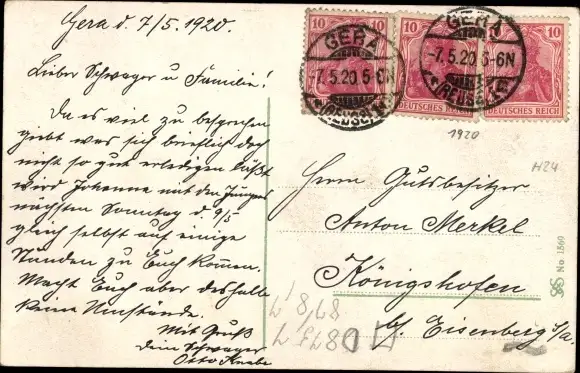 Gera d. 7/5. 1920.
Lieber Schwager u Familie!
Da es viel zu besprechen
giebt was sich brieflich doch
nicht so gut erledigen läßt
wird Johanna mit den Jungens
nächsten Sonntag d. 9/5
gleich selbst auf einige
Stunden zu Euch kommen.
Macht Euch aber deshalb
keine Umstände.
Mit Gruß
Dein Schwager
Otto Knabe
10 10
GERA
-7.5.20 5-6N
(REUSS)
10
DEUTSCHES REICH
GERA
-7.5.20 5-6N
(REUSS)
10 10
DEUTSCHES REICH
1920
H24
Herrn Gutsbesitzer
Anton Merkel
Königshofen
b/ Eisenberg S/a
No 1560